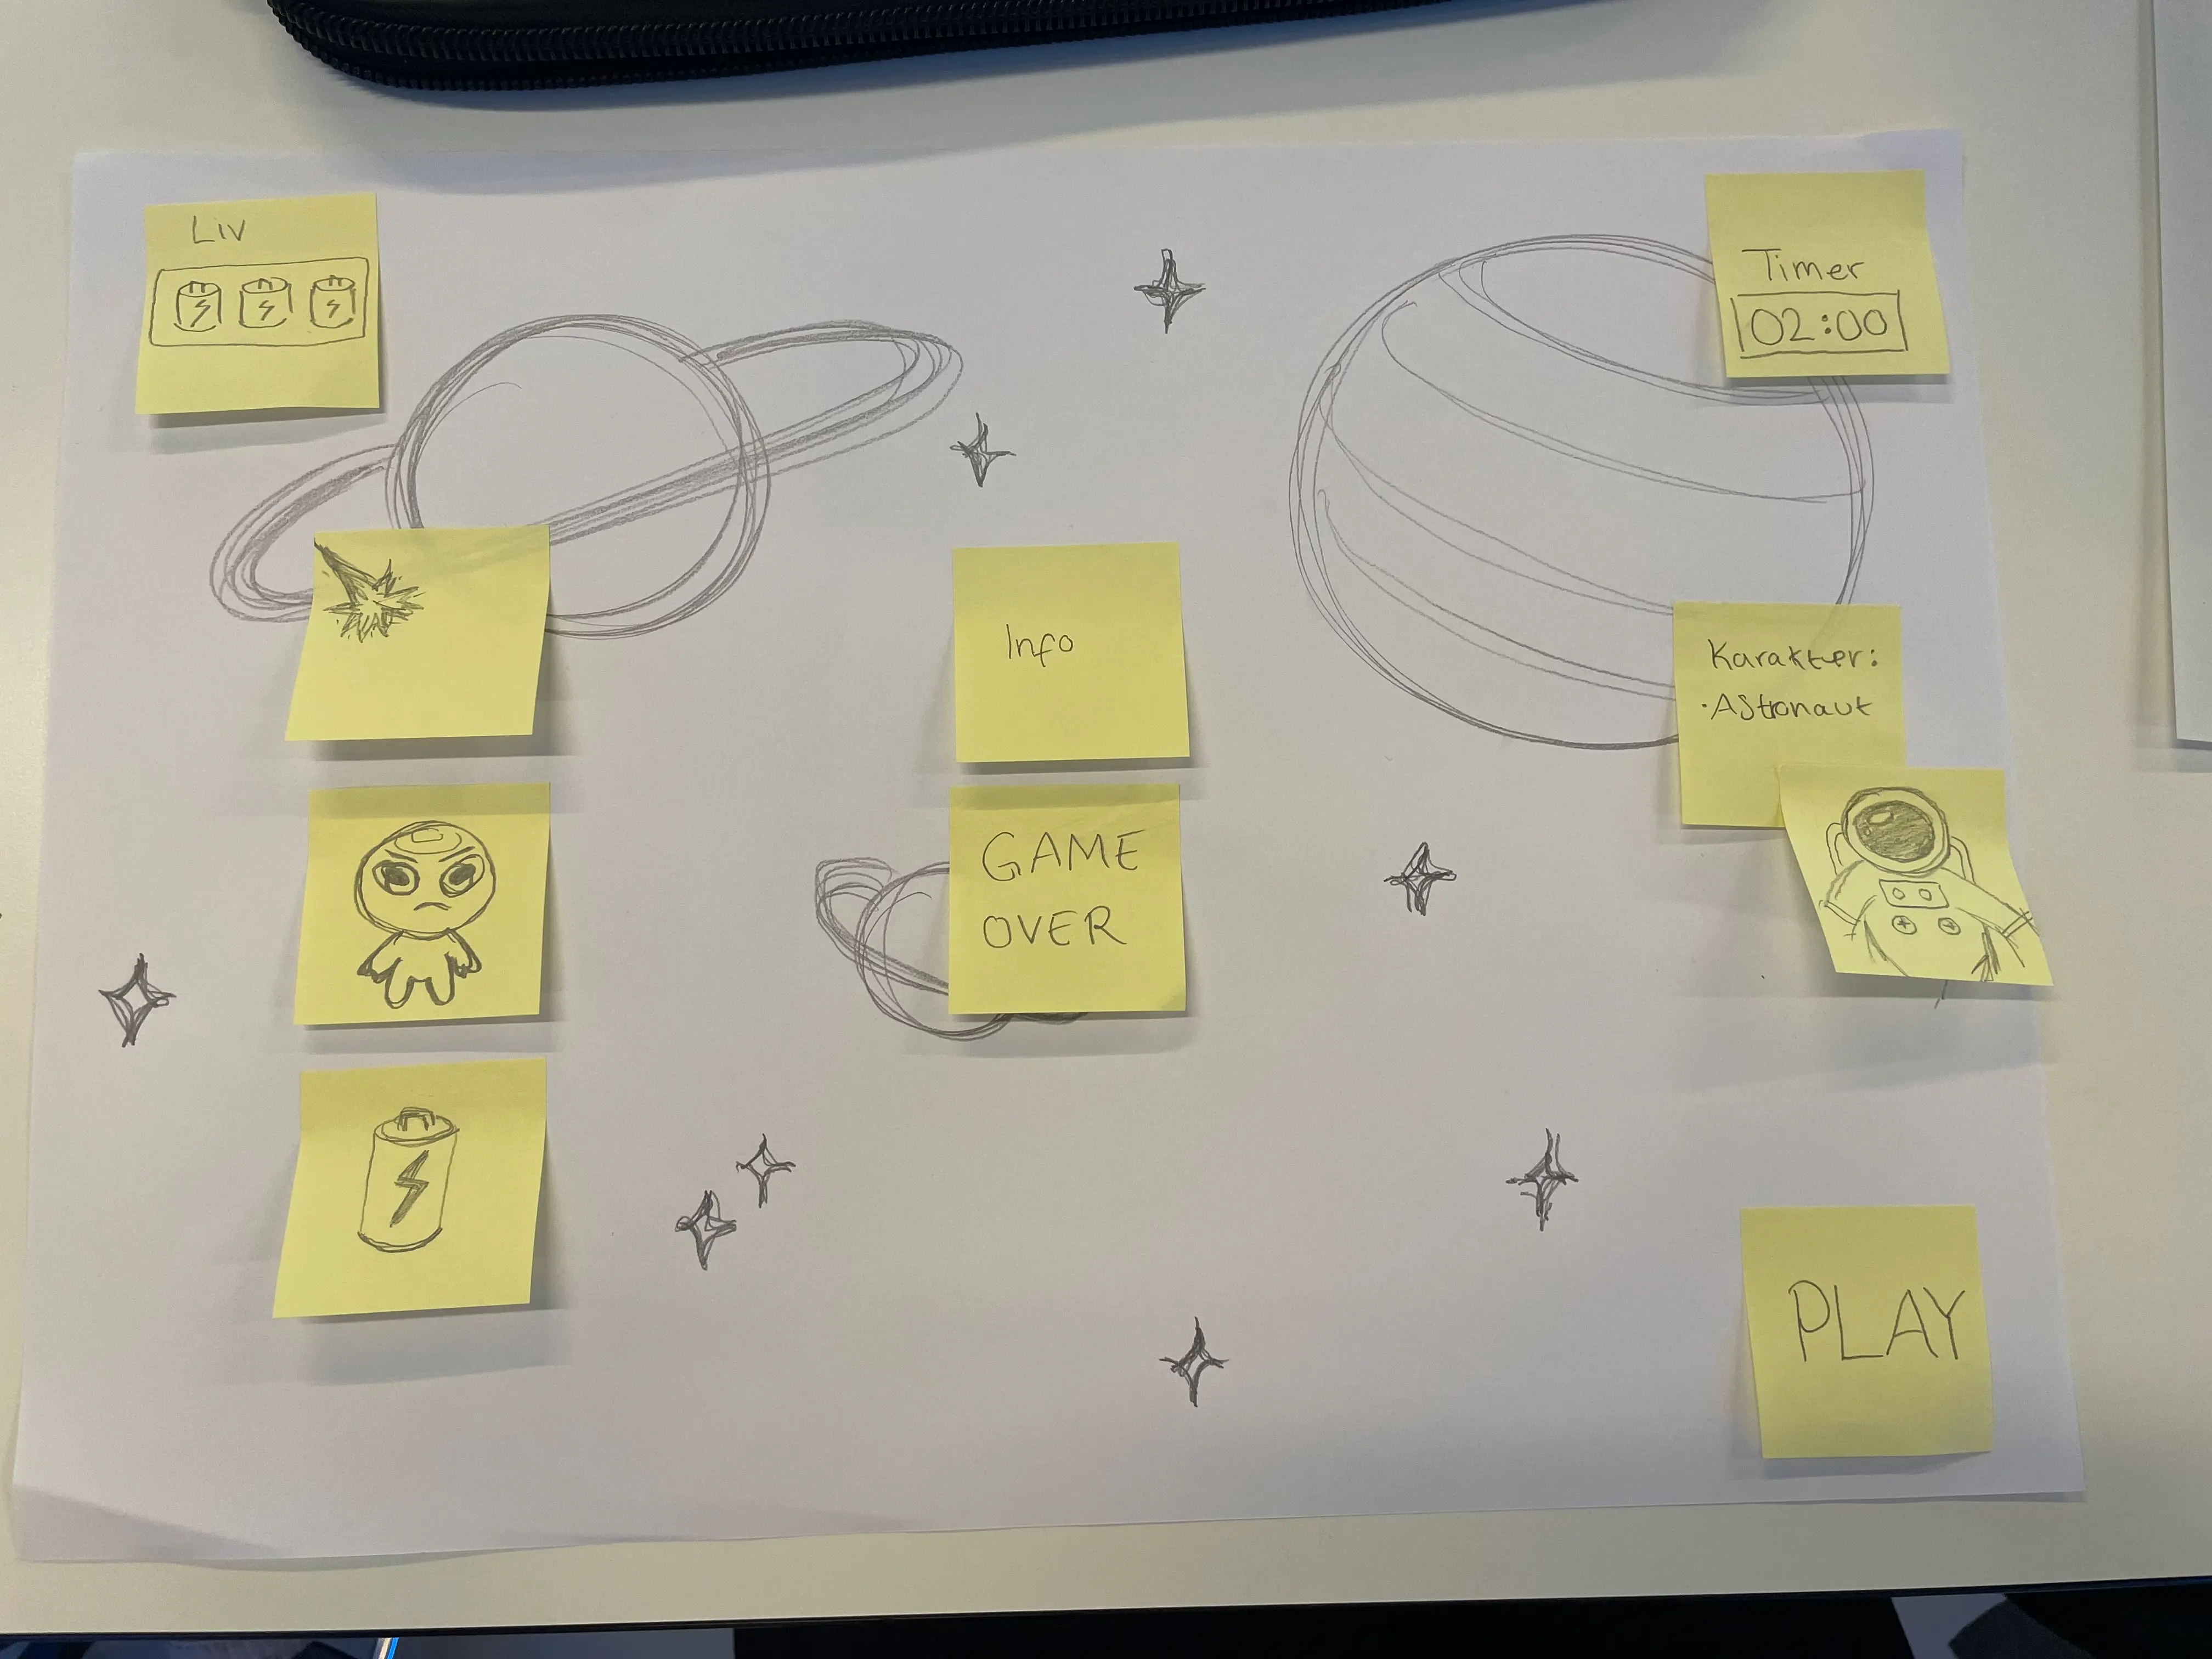 Liv
Timer
02:00
Info
Karakter:
·Astronaut
GAME
OVER
PLAY